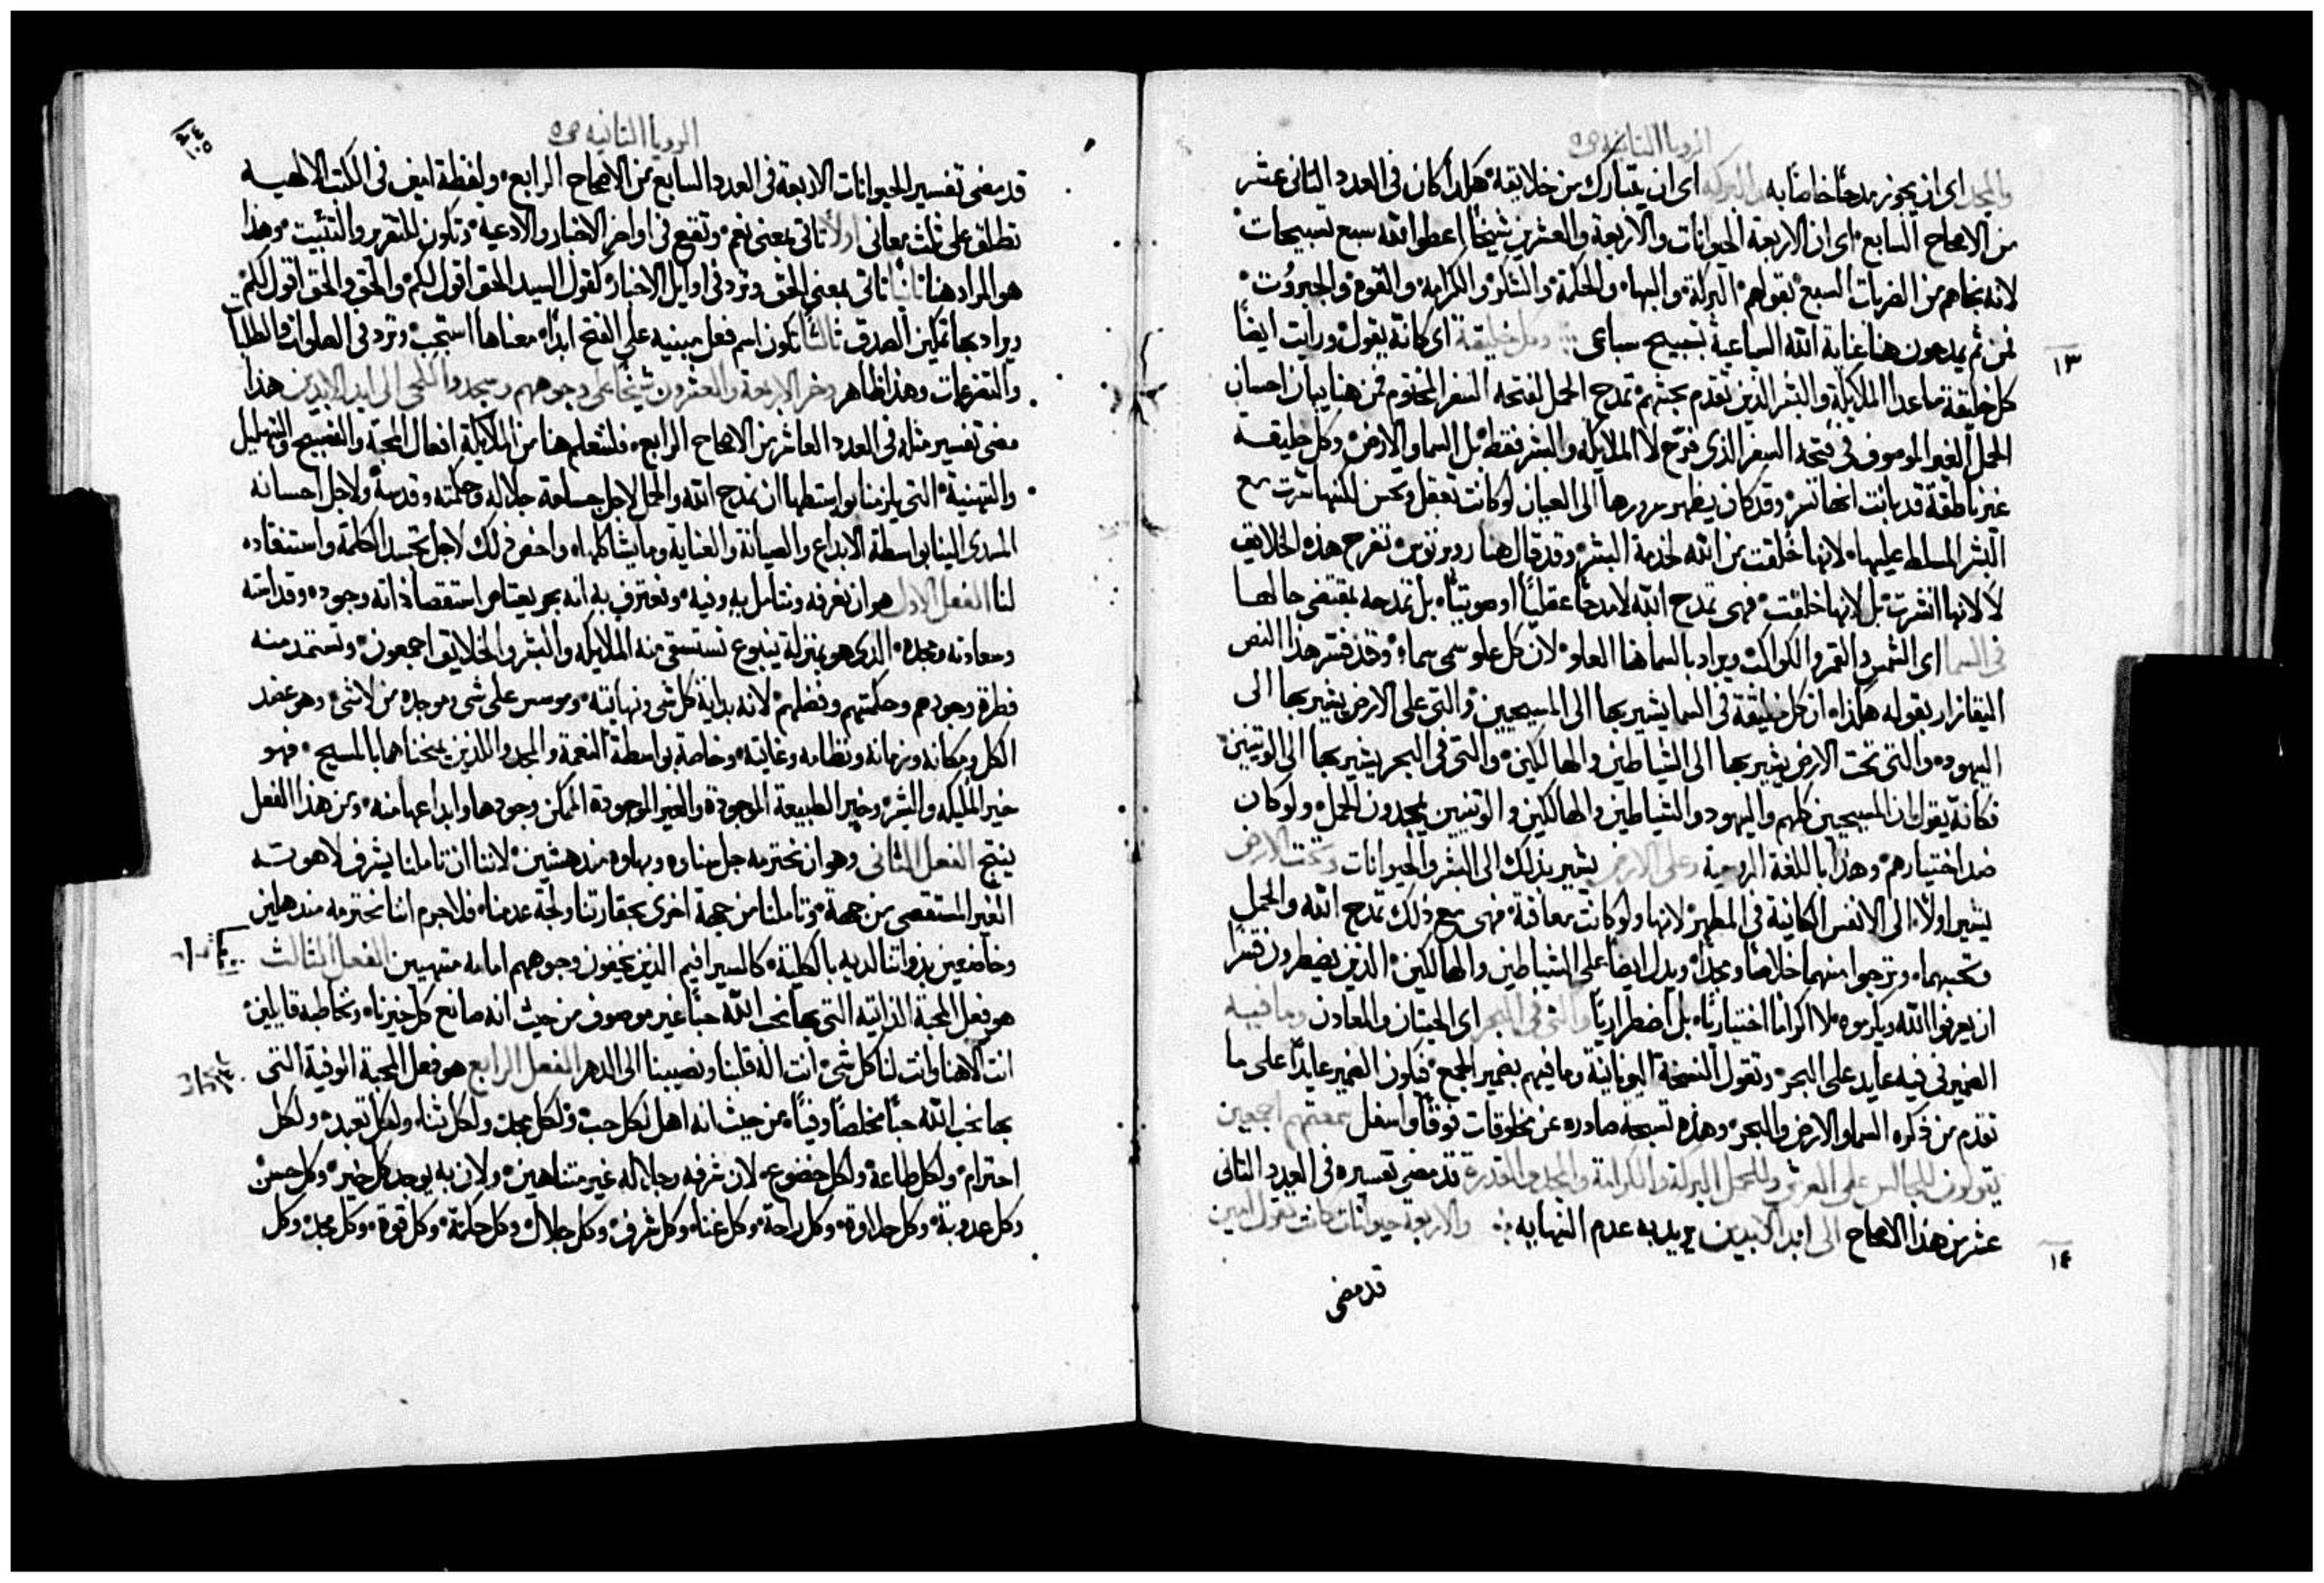 الرويا الثانيه ص٥
والمجد اى ان يحوز مدحًا خاصًا به والبركه اى ان يتبارك من خلايقه هكذا كان فى العدد الثانى عشر
من الاصحاح السابع اى ان الاربعة الحيوانات والاربعة والعشرين شيخًا اعطوا الله سبع تسبيحات
لانه نجاهم من الضربات السبع بقولهم البركة والبهاء والحكمة والشكر والكرامة والقوة والجبروت
فمن ثم يمدحون هنا عناية الله السباعية بتسبيح سباعى وكل خليقة اى كانه يقول ورايت ايضًا
١٣
كل خليقة ما عدا الملايكة والبشر الذين تقدم بحثهم تمدح الحمل لفتحه السفر المختوم فمن هنا يبان احسان
الحمل الغير الموصوف فى فتحه السفر الذى فرّح لا الملايكة والبشر فقط بل السما والارض وكل خليقة
غير ناطقة قد بانت انها تسر وقد كان يظهر سرورها الى العيان لو كانت تعقل وتحس لكنها سرت مع
البشر المسلط عليها لانها خلقت من الله لخدمة البشر وقد قال هنا روبرتوس تفرح هذه الخلايق
لا لانها انشرت بل لانها خلقت فهى تمدح الله لا مدحًا عقليًا او صوتيًا بل تمدحه بمقتضى حالها
فى السما اى الشمس والقمر والكواكب ويراد بالسما هنا العلو لان كل علو سمى سماء وقد فسر هذا النص
اليقازار بقوله هكذا ان كل خليقة فى السما يشير بها الى المسيحيين والتى على الارض يشير بها الى
اليهود والتى تحت الارض يشير بها الى الشياطين والهالكين والتى فى البحر يشير بها الى الوثنيين
فكانه يقول ان المسيحيين كلهم واليهود والشياطين والهالكين والوثنيين يمجدون الحمل ولو كان
ضد اختيارهم وهذا باللغة الروحية وعلى الارض يشير بذلك الى البشر والحيوانات وتحت الارض
يشير اولًا الى الانفس الكاينة فى المطهر لانها ولو كانت معاقبة فهى مع ذلك تمدح الله والحمل
وتحبهما وترجوا منهما خلاصًا ومجدًا ويدل ايضًا على الشياطين والهالكين الذين يضطرون قسرًا
ان يعرفوا الله ويكرموه لا اكرامًا اختياريًا بل اضطراريًا والتى فى البحر اى الحيتان والمعادن وما فيه
الضمير فى فيه عايد على البحر وتقول النسخة اليونانية وما فيهم بضمير الجمع فيكون الضمير عايدًا على ما
تقدم من ذكره السما والارض والبحر وهذه تسبحة صادره عن مخلوقات فوقًا واسفل سمعتهم اجمعين
يقولون للجالس على العرش وللحمل البركة والكرامة والمجد والقدرة قد مضى تفسيره فى العدد الثانى
عشر من هذا الاصحاح الى ابد الابدين يريد به عدم النهايه والاربعة حيوانات كانت تقول امين
١٤
قد مضى
الرويا الثانيه ص٥
قد مضى تفسير الحيوانات الاربعة فى العدد السابع من الاصحاح الرابع ولفظة امين فى الكتب الالهيه
تطلق على ثلث معانى اولًا تاتى بمعنى نعم وتقع فى اواخر الاخبار والادعية وتكون للتقرير والتثبيت وهذا
هو المراد هنا ثانيًا تاتى بمعنى الحق وترد فى اوايل الاخبار كقول السيد الحق اقول لكم والحق والحق اقول لكم
ويراد بها تمكين الصدق ثالثًا تكون اسم فعل مبنيه على الفتح ابدًا معناها استجب وترد فى الصلوات والطلبات
والتضرعات وهذا ظاهر وخر الاربعة والعشرون شيخًا على وجوههم وسجدوا للحى الى ابد الابدين هذا
مضى تفسير مثله فى العدد العاشر من الاصحاح الرابع فلنتعلم هنا من الملايكة افعال المحبة والتسبيح والتهليل
والتهنية التى يلزمنا بواسطتها ان نمدح الله والحمل لاجل جسامة جلاله وحكمته وقدسه ولاجل احسانه
المسدى الينا بواسطة الابداع والصيانة والعناية وما يشاكلها واخص ذلك لاجل تجسد الكلمة واستنقاده
لنا الفعل الاول هو ان نعرفه ونتامل به وفيه ونعترف به انه بحر يعتاص استقصا ذاته وجوده وقداسته
وسعادته ومجده الذى هو بمنزلة ينبوع تستسقى منه الملايكه والبشر والخلايق اجمعون وتستمد منه
فطرة وجودهم وحكمتهم وفضلهم لانه بداية كل شى ونهايته وموسس على شى وموجده من لا شى وهو عضد
الكل ومكانه وزمانه ونظامه وغايته وخاصة بواسطة النعمة والمجد اللذين يمنحناهما بالمسيح فهو
خير المليكه والبشر وخير الطبيعة الموجودة والغير الموجودة الممكن وجودها وابداعها منه ومن هذا الفعل
ينتج الفعل الثانى وهو ان نحترمه جل سناوه وبهاوه مندهشين لاننا ان تاملنا بشرف لاهوته
الغير المستقصى من جهة وتاملنا من جهة اخرى بحقارتنا ولجة عدمنا فلا جرم اننا نحترمه منذهلين
وخاضعين بذواتنا لديه بالكلية كالسيرافيم الذين يخفون وجوههم امامه متهيبين الفعل الثالث
هو فعل المحبة الذاتيه التى بها نحب الله حبًا غير موصوف من حيث انه صانع كل خيرنا ونخاطبه قايلين
انت الاهنا وانت لنا كل شى انت اله قلبنا ونصيبنا الى الدهر الفعل الرابع هو فعل المحبة الوفية التى
بها نحب الله حبًا مخلصًا وفيًا من حيث انه اهل لكل حب ولكل مجد ولكل ثناء ولكل تعبد ولكل
احترام ولكل طاعة ولكل خضوع لان شرفه وجلاله غير متناهيين ولان به يوجد كل خير وكل حسن
وكل عذوبة وكل حلاوة وكل راحة وكل غناء وكل شرف وكل جلال وكل حكمة وكل قوة وكل مجد وكل